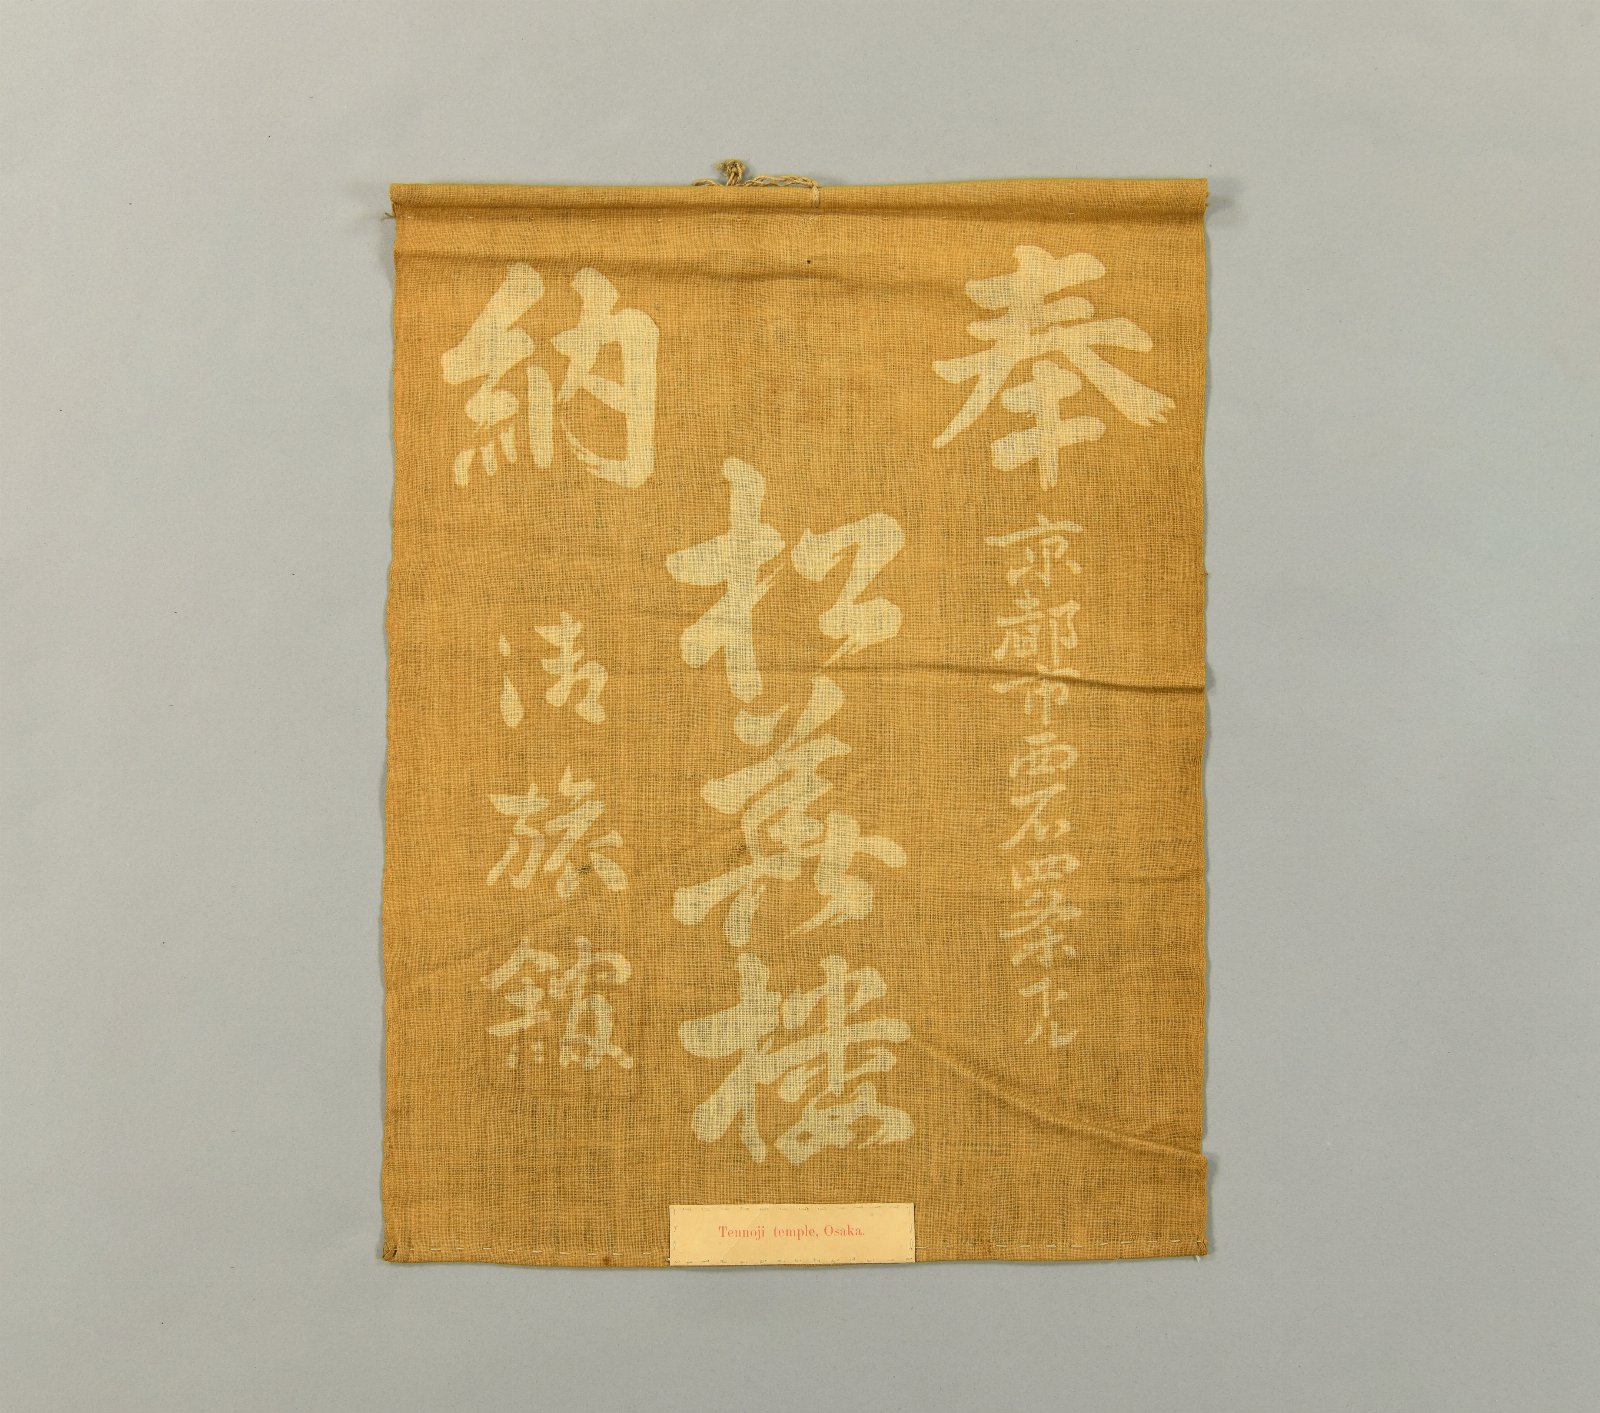 奉納
京都市西石四条下ル
松 楼
御旅館
Tennoji temple, Osaka.